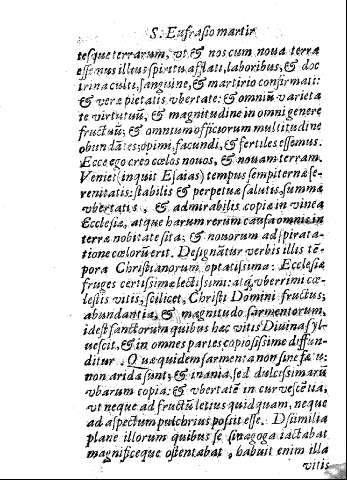 S. Eufrasio martir
tesque terrarum, vt & nos cum noua terra
essemus illeus spiritu afflati, laboribus, & doc
trina culti, sanguine, & martirio confirmati:
& veræ pietatis vbertate: & omniũ varieta
te virtutuũ, & magnitudine in omni genere
fructuũ, & omnium officorum multitudine
obundãtes, opimi, facundi, & fertiles essemus.
Ecce ego creo cœlos nouos, & nouam terram.
Veniet (inquit Esaias) tempus sempiternæ se-
renitatis: stabilis & perpetuæ salutis, summæ
vbertatis, & admirabilis copiæ in vinea
Ecclesiæ, atque harum rerum causa omnia in
terra nobitate sita, & nouorum ad spirata-
tione cœlorũ erit. Designãtur verbis illis tẽ-
pora Christianorum optatissima: Ecclesiæ
fruges certissimæ lectissimi: atq; vberrimi cœ-
lestis vitis, scilicet, Christi Domini fructus;
abundantia, & magnitudo sarmentorum,
idest sanctorum quibus hæc vitis Diuina syl-
uescit, & in omnes partes copiosissime diffun-
ditur. Quæ quidem sarmenta non sine fœtu:
non arida sunt, & inania, sed dulcissimarũ
vbarum copia & vbertatẽ in curvescẽtia,
vt neque ad fructũ letius quidquam, neque
ad aspectum pulchrius possit esse. Dsimilia
plane illorum quibus se sinagoga iactabat
magnificeque ostentabat, habuit enim illa
vitis